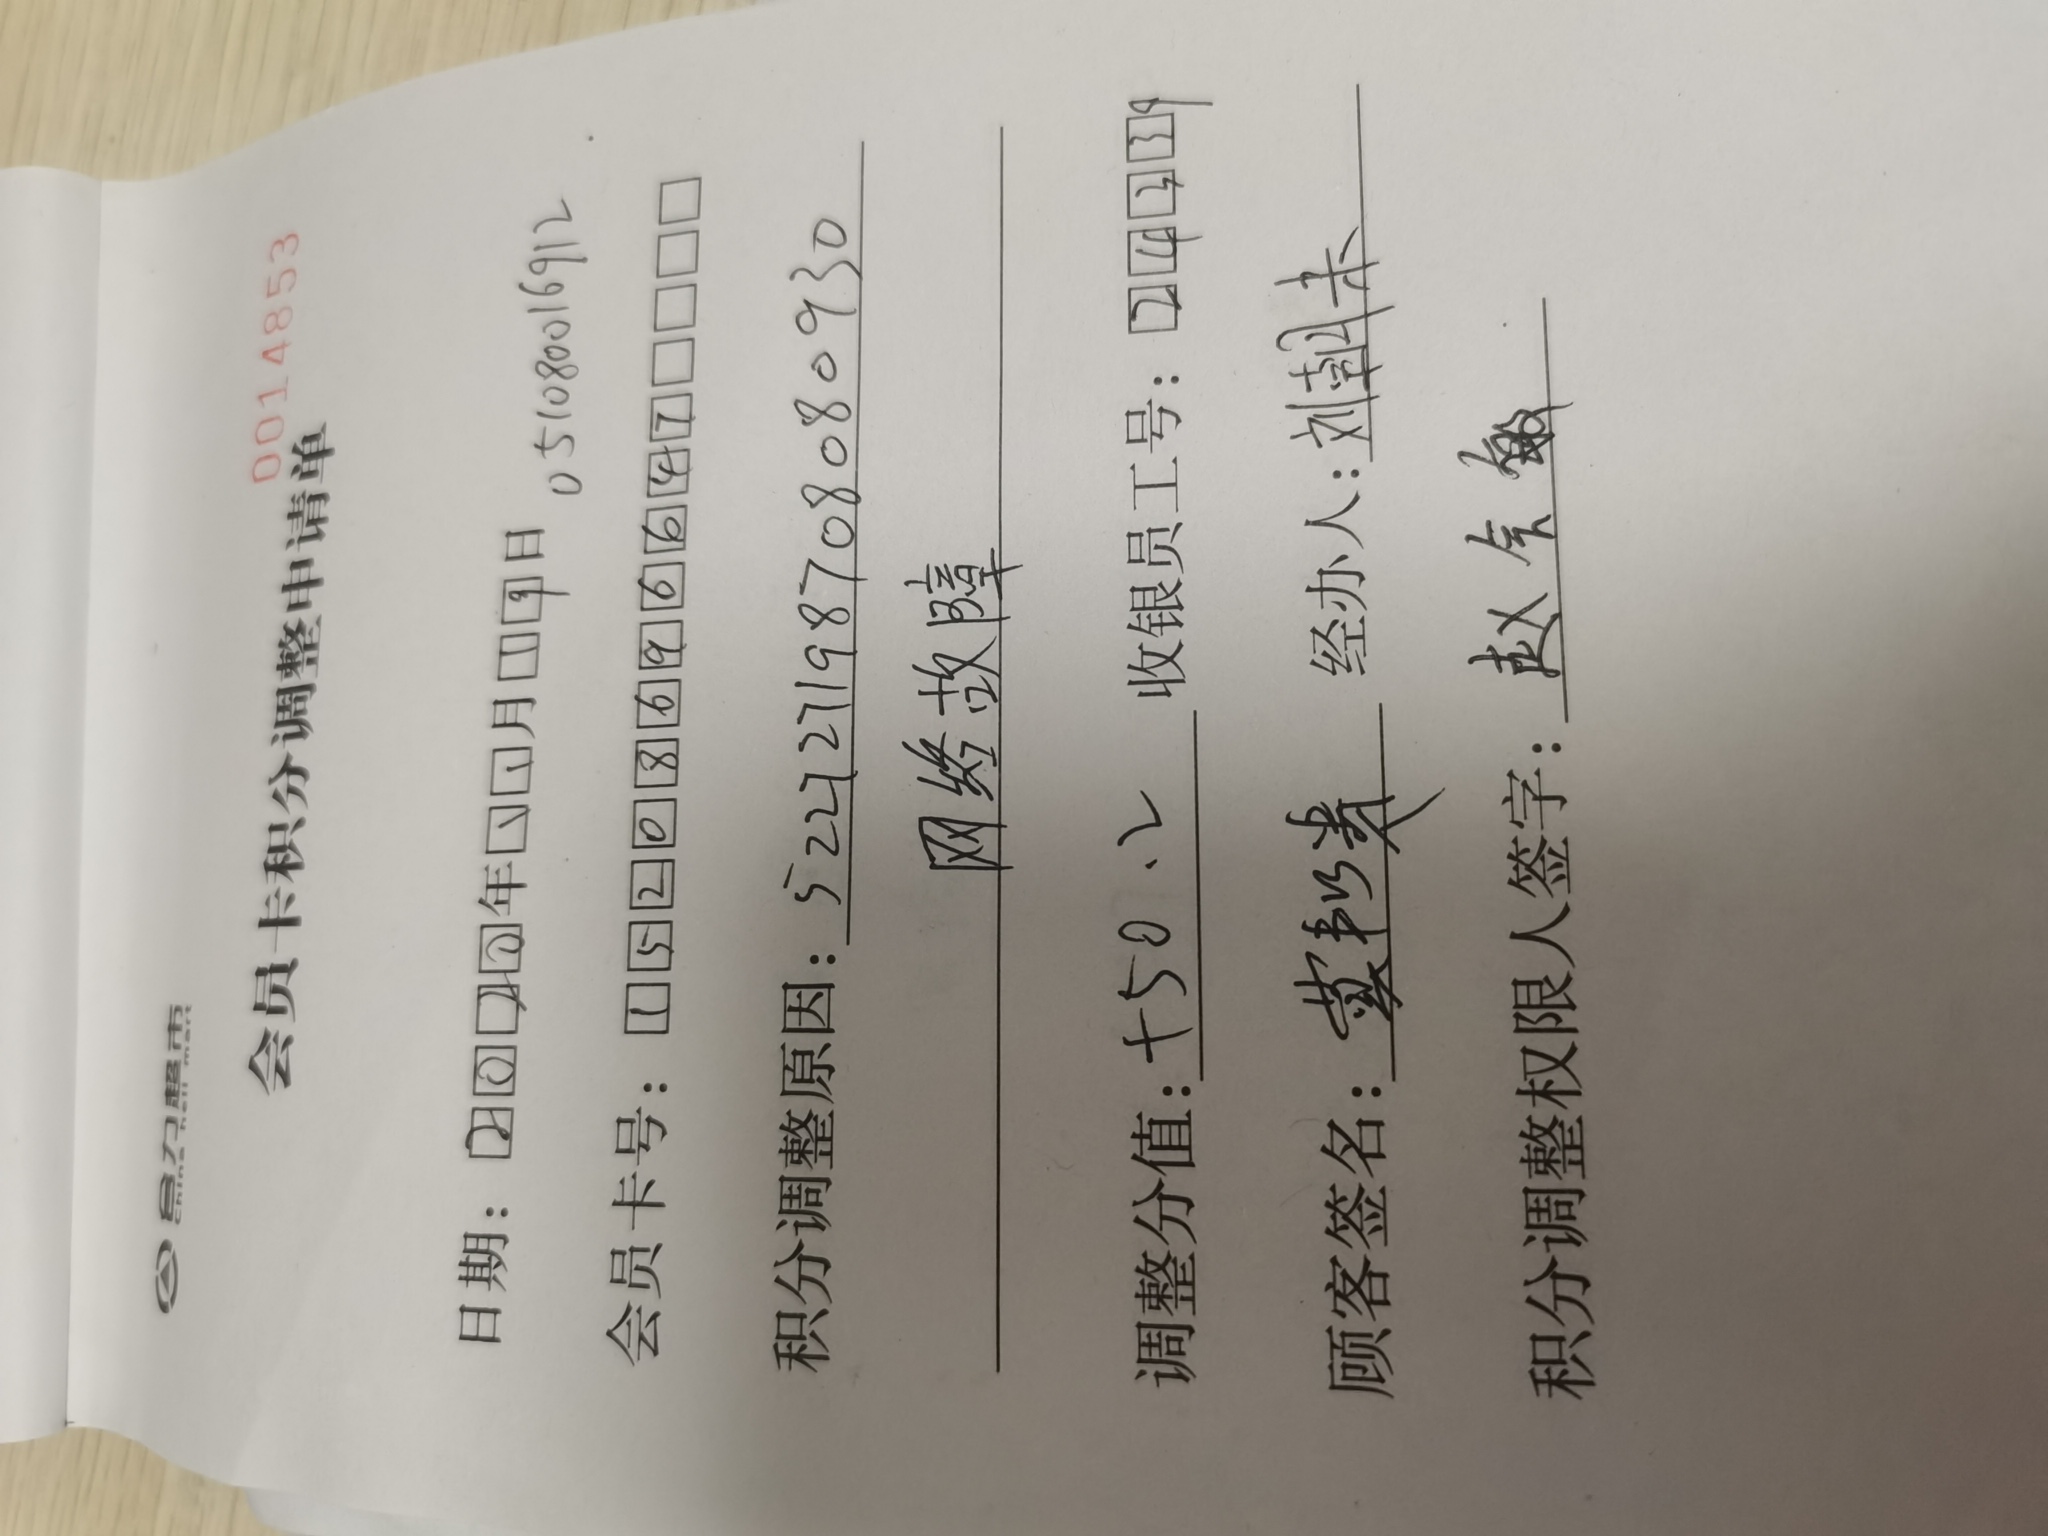 合力超市
china holi mart
00148853
会员卡积分调整申请单
日期：2020年11月19日
051080016912
会员卡号：15208699664 7
积分调整原因：522271987080809 30
网络故障
调整分值：+50.2 收银员工号：24239
顾客签名： 经办人：刘
积分调整权限人签字：赵